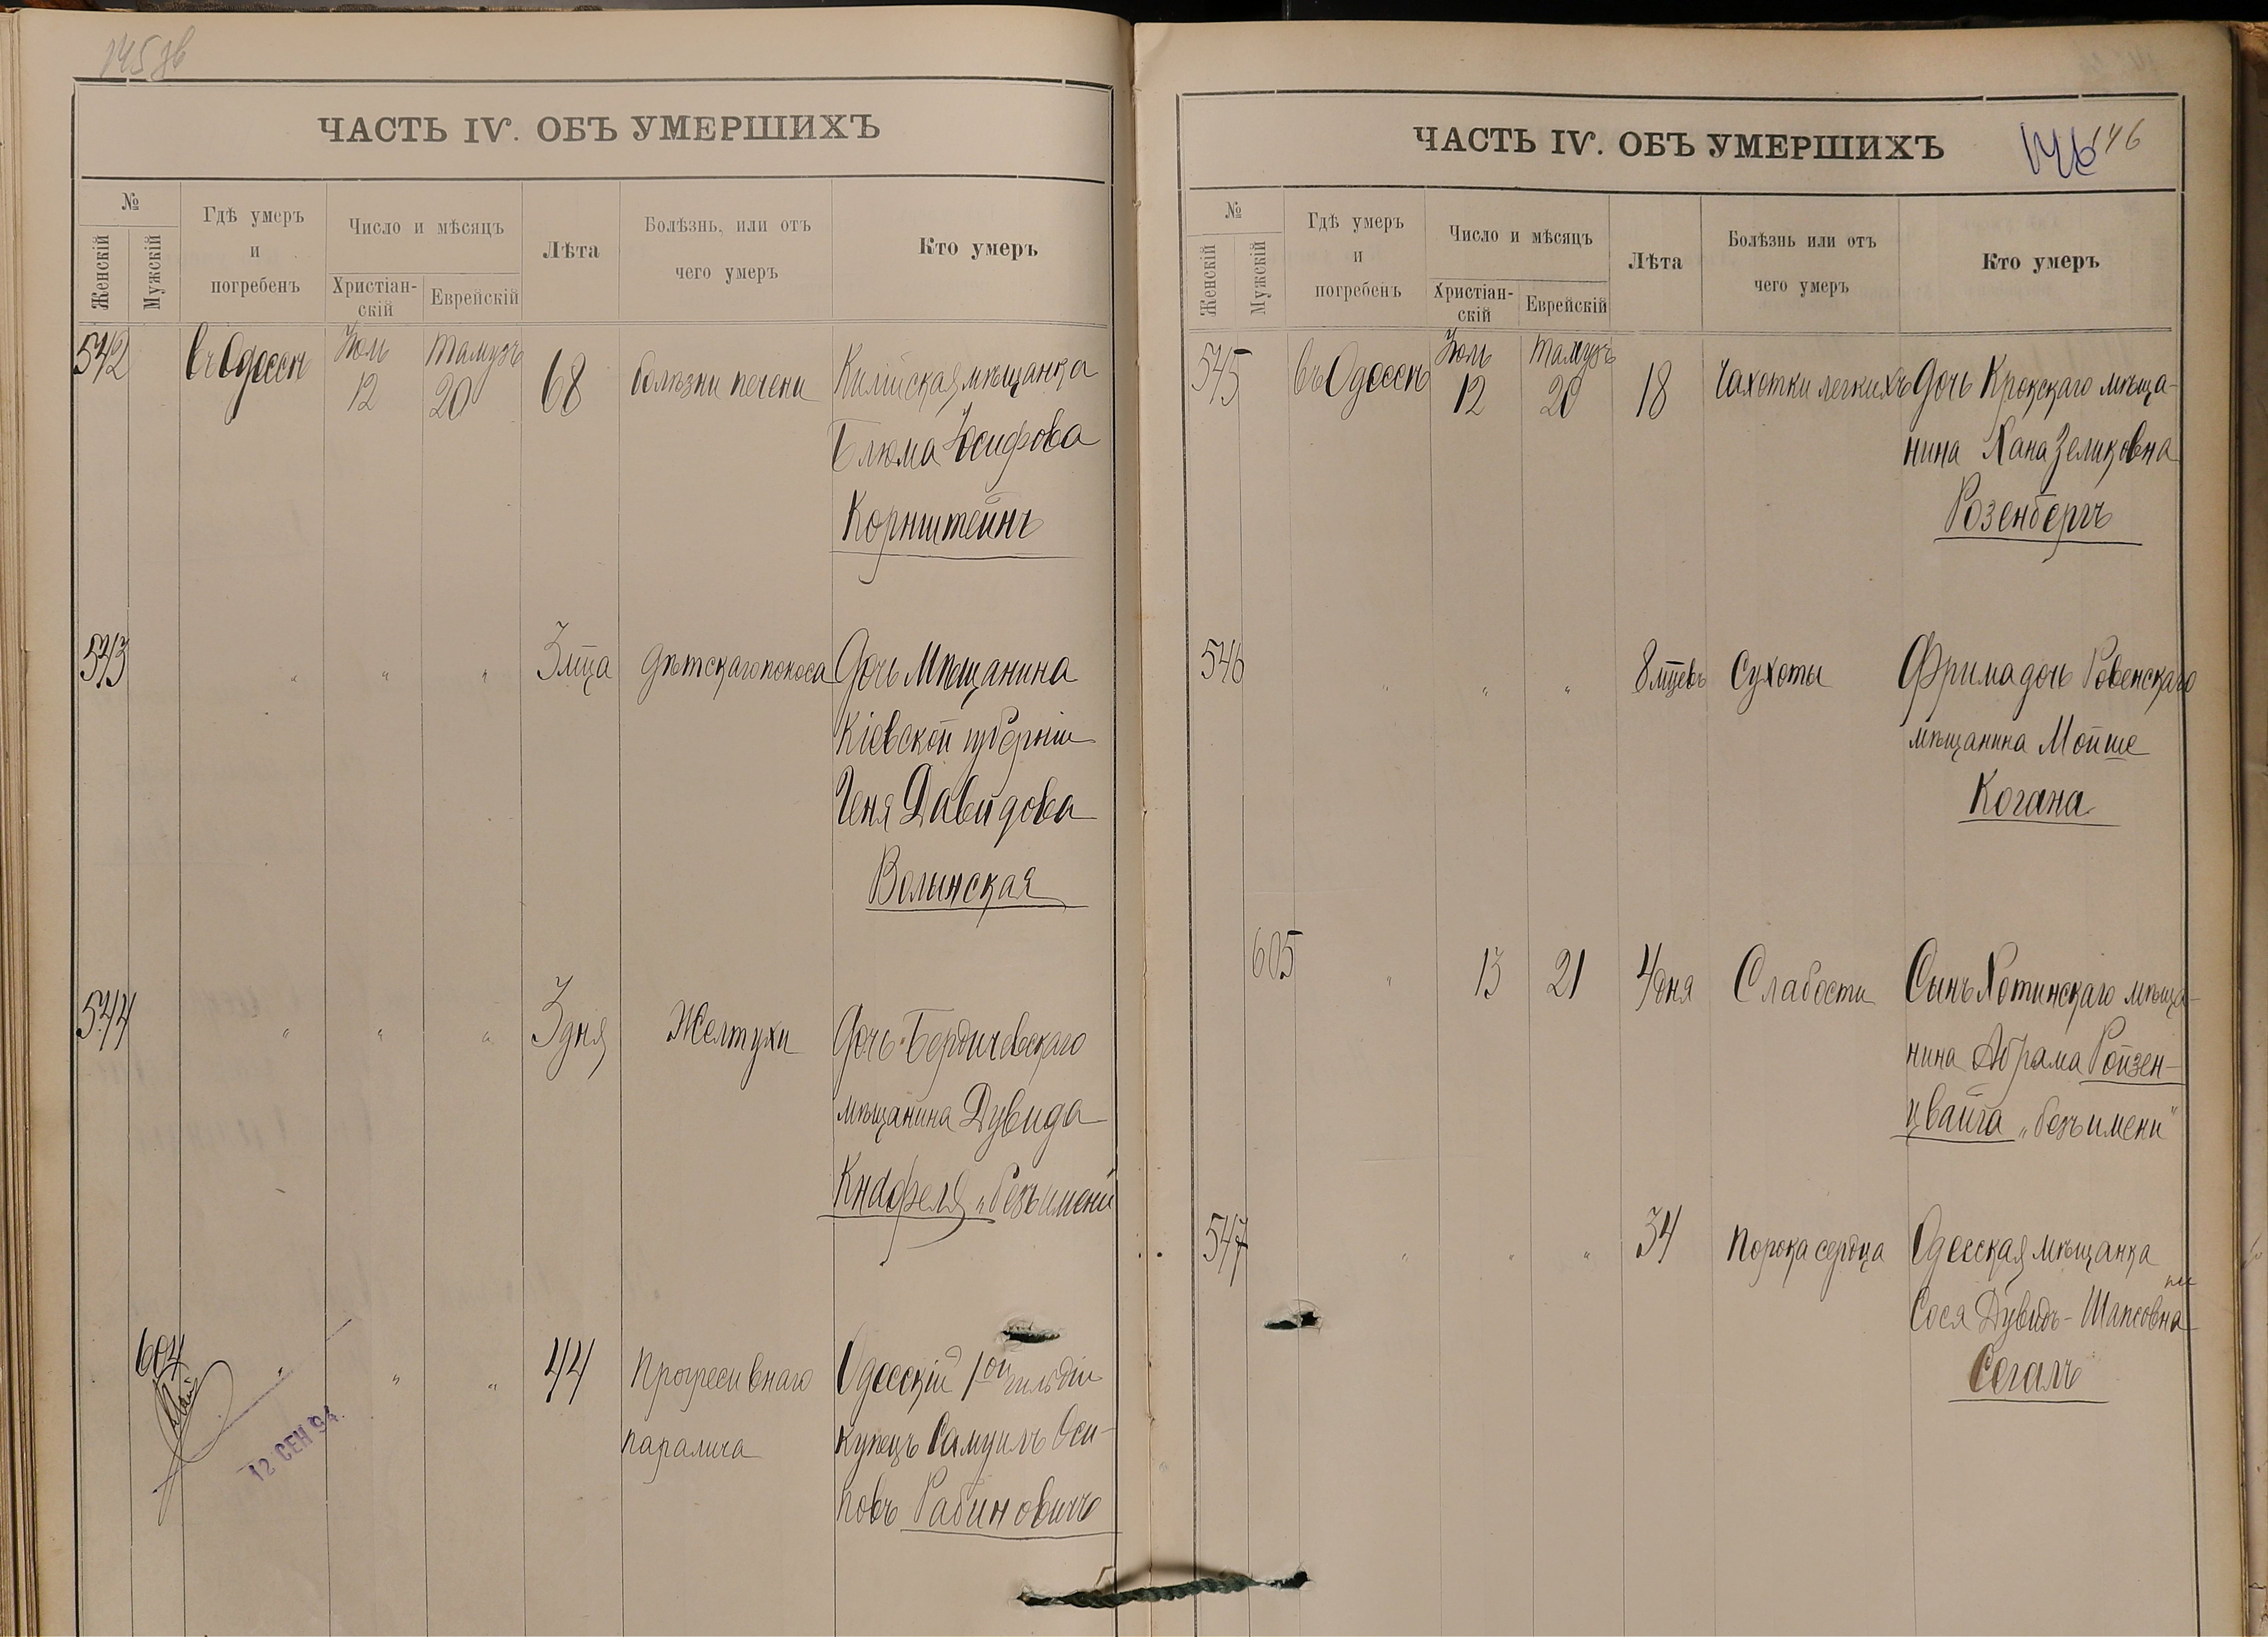 145 об
ЧАСТЬ IV. ОБЪ УМЕРШИХЪ
№
Женскій
Мужскій
Гдѣ умеръ
и
погребенъ
Число и мѣсяцъ
Христіан-
скій
Еврейскій
Лѣта
Болѣзнь, или отъ
чего умеръ
Кто умеръ
542 въ Одессѣ Іюль 12 Тамузъ 20 68 болѣзни печени Килійская мѣщанка
Блюма Іосифова
Корнштейнъ
543 " " " 3 мца Дѣтскаго поноса Дочь Мѣщанина
Кіевской губерніи
Геня Давидова
Волынская
544 " " " 3 дня Желтухи Дочь Бердичевскаго
мѣщанина Дувида
Кнафеля „безъ имени
604 " " " 44 Прогресивнаго Одесскій 1ой гильдіи
паралича купецъ Самуилъ Оси-
повъ Рабиновичъ
12 СЕН 94.
ЧАСТЬ IV. ОБЪ УМЕРШИХЪ
146 146
№
Женскій
Мужскій
Гдѣ умеръ
и
погребенъ
Число и мѣсяцъ
Христіан-
скій
Еврейскій
Лѣта
Болѣзнь или отъ
чего умеръ
Кто умеръ
545 въ Одессѣ Іюль 12 Тамузъ 20 18 Чахотки легкихъ Дочь Крокскаго мѣща-
нина Хана Зеликовна
Розенбергъ
546 " " " 8 мцевъ Сухоты Фрима дочь Ровенскаго
мѣщанина Мойше
Когана
605 " 13 21 4 дня Слабости Сынъ Хотинскаго мѣща-
нина Абрама Ройзен-
цвайга „безъ имени"
547 " " " 34 Порока сердца Одесская мѣщанка
Сося Дувидъ-Шапсовна
Сегалъ